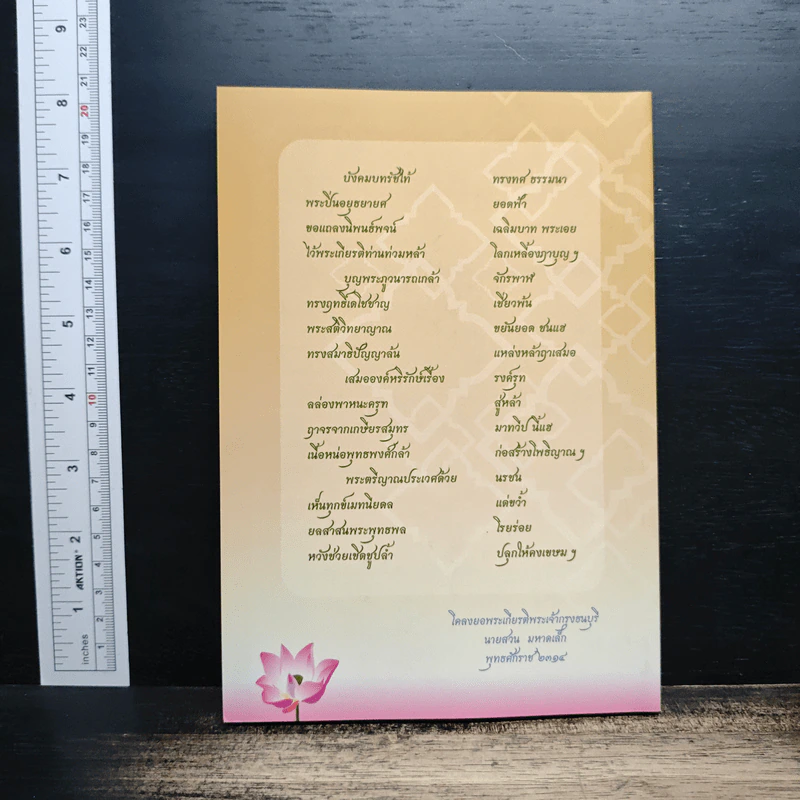 บังคมบทรัชไท้ ทรงทศ ธรรมนา
พระปิ่นอยุธยายศ ยอดฟ้า
ขอแถลงนิพนธ์พจน์ เฉลิมบาท พระเอย
ไว้พระเกียรติท่านท่วมหล้า โลกเหลื้องฦาบุญ ฯ
บุญพระภูวนารถเกล้า จักรพาฬ
ทรงฤทธิ์เดโชชาญ เชี่ยวพัน
พระสติวิทยาญาณ ขยันยอด ชนแฮ
ทรงสมาธิปัญญาล้น แหล่งหล้าฤาเสมอ
เสมอองค์หริรักษ์เรื้อง รงค์รุท
ลล่องพาหนะครุฑ สู่หล้า
ฤาจรจากเกษียรสมุทร มาทวีป นี้แฮ
เนื้อหน่อพุทธพงศ์กล้า ก่อสร้างโพธิญาณ ฯ
พระตรีญาณประเวศด้วย นรชน
เห็นทุกข์เมทนียดล แด่ขว้ำ
ยลสาสนพระพุทธพล โรยร่อย
หวังช่วยเชิดชูปล้ำ ปลุกให้คงเขษม ฯ
โคลงยอพระเกียรติพระเจ้ากรุงธนบุรี
นายสวน มหาดเล็ก
พุทธศักราช ๒๓๑๔
inches
1 2 3 4 5 6 7 8 9
AKTION
1 2 3 4 5 6 7 8 9 10 11 12 13 14 15 16 17 18 19 20 21 22 23